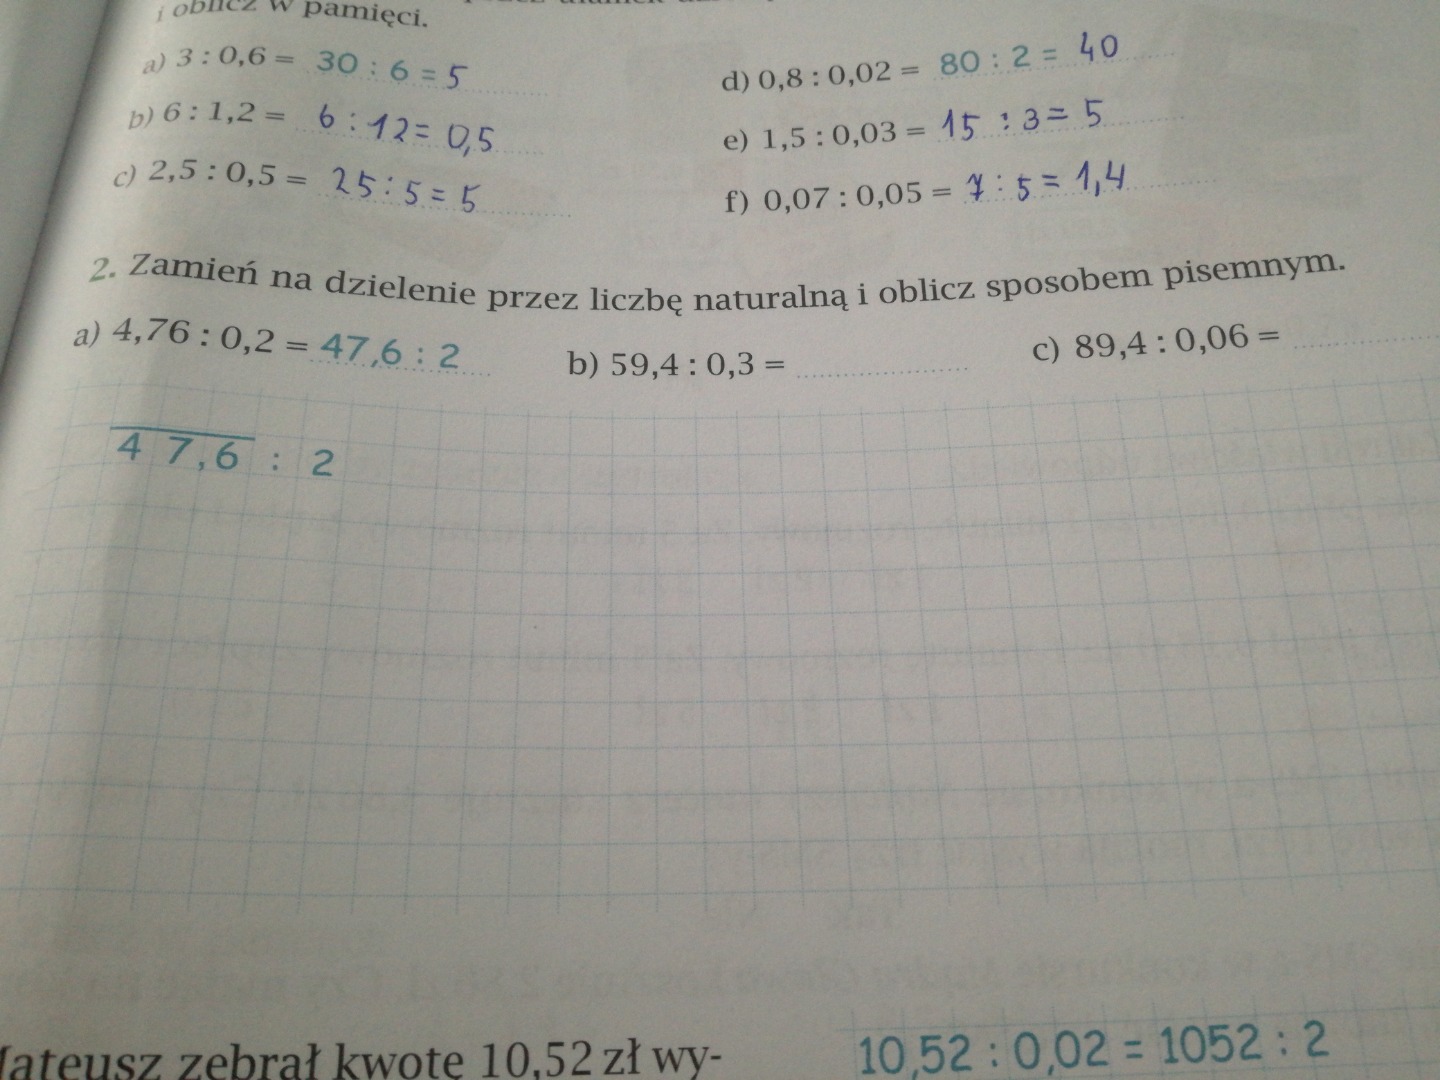 i oblicz w pamięci.
a) 3 : 0,6 = 30 : 6 = 5
d) 0,8 : 0,02 = 80 : 2 = 40
b) 6 : 1,2 = 6 : 12 = 0,5
e) 1,5 : 0,03 = 15 : 3 = 5
c) 2,5 : 0,5 = 25 : 5 = 5
f) 0,07 : 0,05 = 7 : 5 = 1,4
2. Zamień na dzielenie przez liczbę naturalną i oblicz sposobem pisemnym.
a) 4,76 : 0,2 = 47,6 : 2
b) 59,4 : 0,3 =
c) 89,4 : 0,06 =
47,6 : 2
Mateusz zebrał kwotę 10,52 zł wy-
10,52 : 0,02 = 1052 : 2